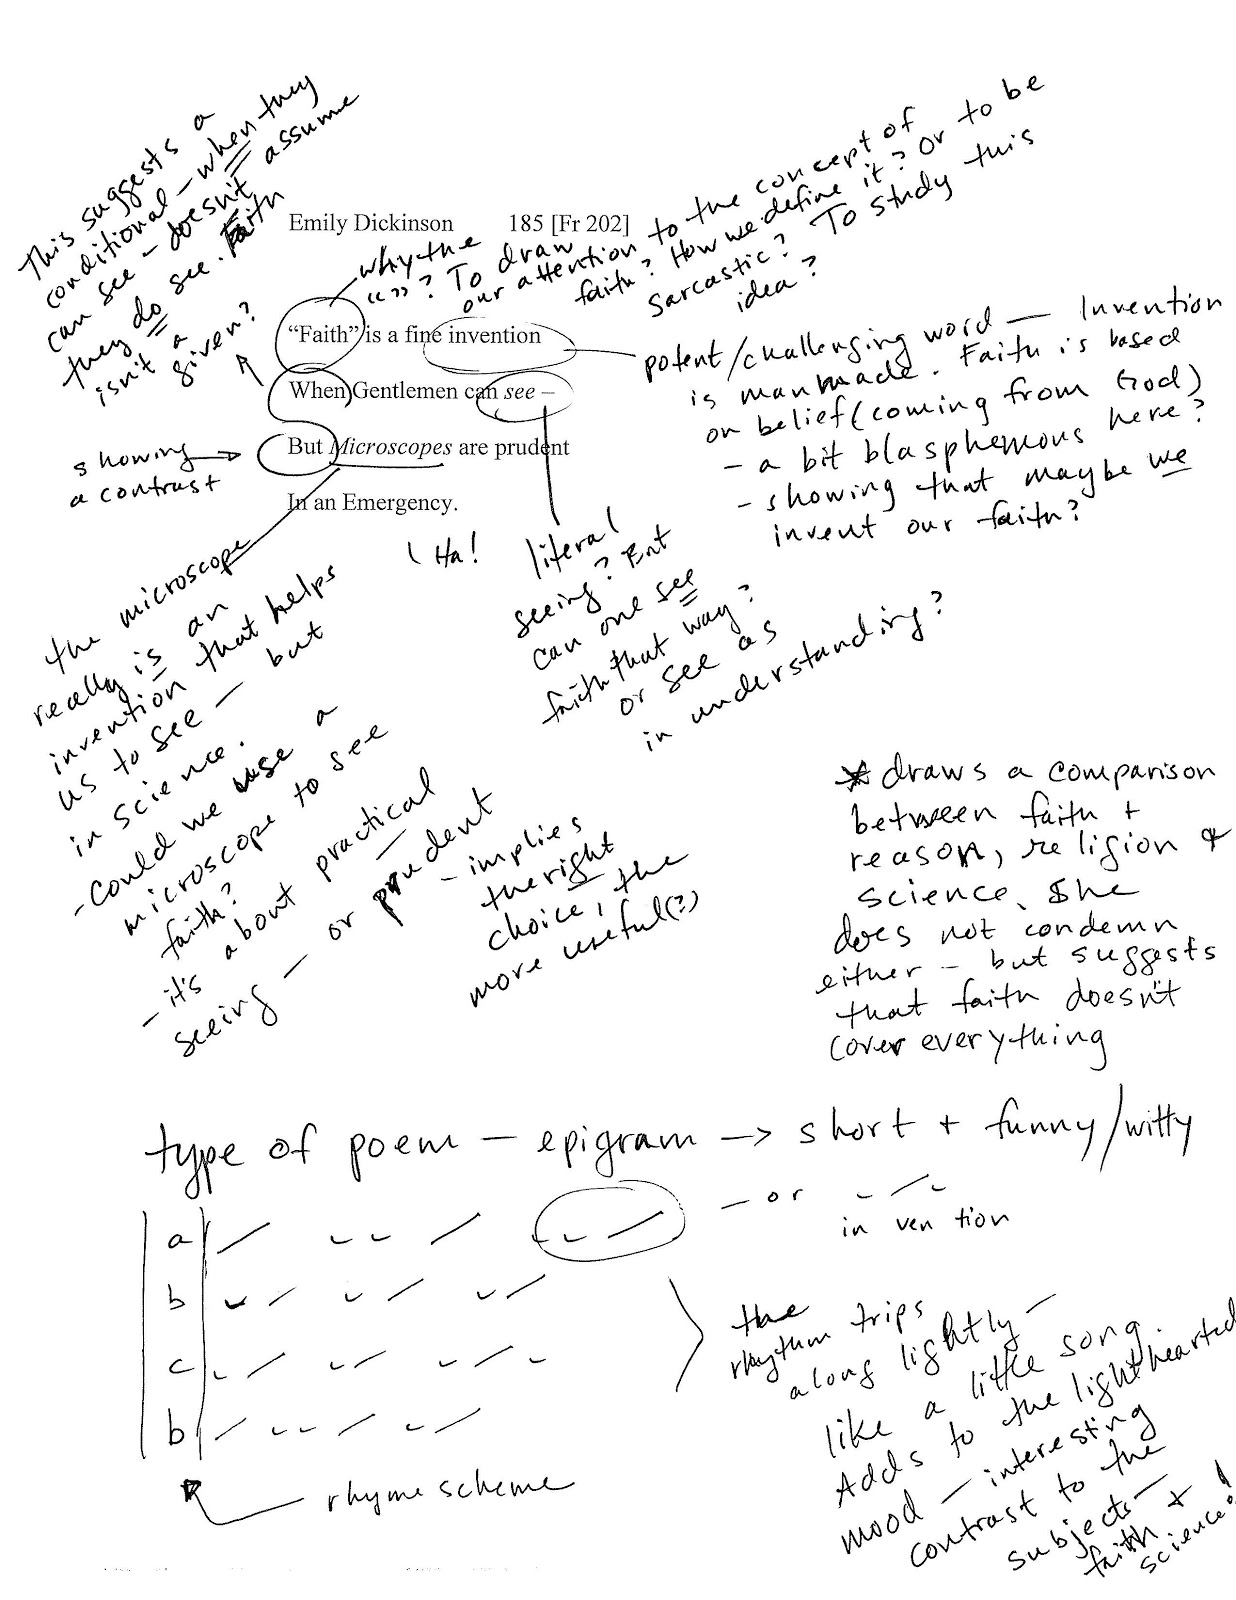 This suggests a
conditional - when they
can see - doesn't assume
they do see. Faith
isn't a
given?
Emily Dickinson 185 [Fr 202]
why the
“ ”? To draw
our attention to the concept of
faith? How we define it? Or to be
sarcastic? To study this
idea?
“Faith” is a fine invention
When Gentlemen can see –
But Microscopes are prudent
In an Emergency.
potent/challenging word — Invention
is manmade. Faith is based
on belief (coming from God)
- a bit blasphemous here?
- showing that maybe we
invent our faith?
showing
a contrast
( Ha!
literal
seeing? But
can one see
faith that way?
or see as
in understanding?
the microscope
really is an
invention that helps
us to see — but
in science.
- could we use a
microscope to see
faith?
- it's about practical
seeing — or prudent
- implies
the right
choice, the
more useful(?)
* draws a comparison
between faith +
reason, religion &
science. She
does not condemn
either - but suggests
that faith doesn't
cover everything
type of poem — epigram -> short + funny/witty
a
— or
in ven tion
b
c
b
rhyme scheme
the
rhythm trips
along lightly —
like a little song.
Adds to the lighthearted
mood — interesting
contrast to the
subjects —
faith +
science!